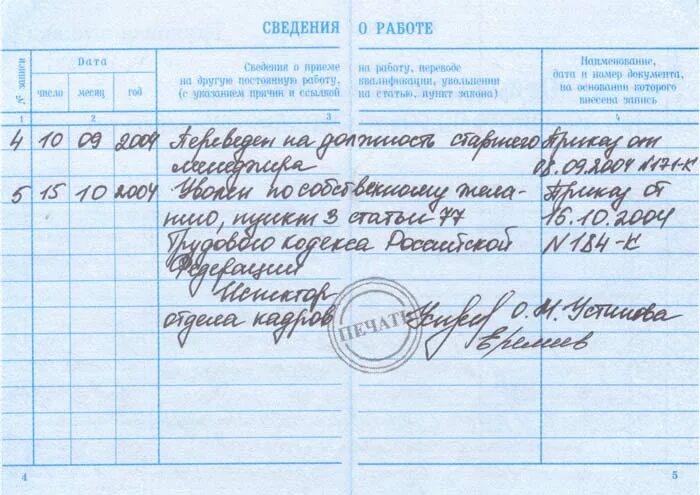 СВЕДЕНИЯ О РАБОТЕ
№ записи
Дата
число месяц год
Сведения о приеме на работу, переводе
на другую постоянную работу, квалификации, увольнении
(с указанием причин и ссылкой на статью, пункт закона)
Наименование,
дата и номер документа,
на основании которого
внесена запись
1 2 3 4
4 10 09 2004 Переведен на должность старшего Приказ от
менеджера 08.09.2004 №171-К
5 15 10 2004 Уволен по собственному жела- Приказ от
нию, пункт 3 статьи 77 15.10.2004
Трудового кодекса Российской N184-К
Федерации
Инспектор
отдела кадров О.М.Устинова
ПЕЧАТЬ
Еремеев
4 5